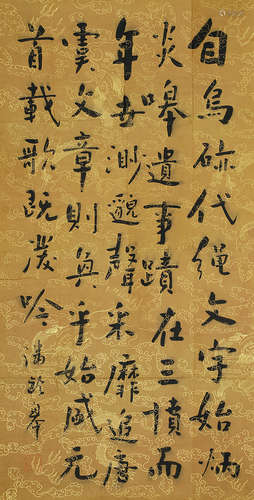 自鳥跡代繩文字始炳
炎暤遺事蹟在三墳而
年世渺邈聲采靡追唐
虞文章則奐乎始盛元
首載歌既發吟 潘齡皋